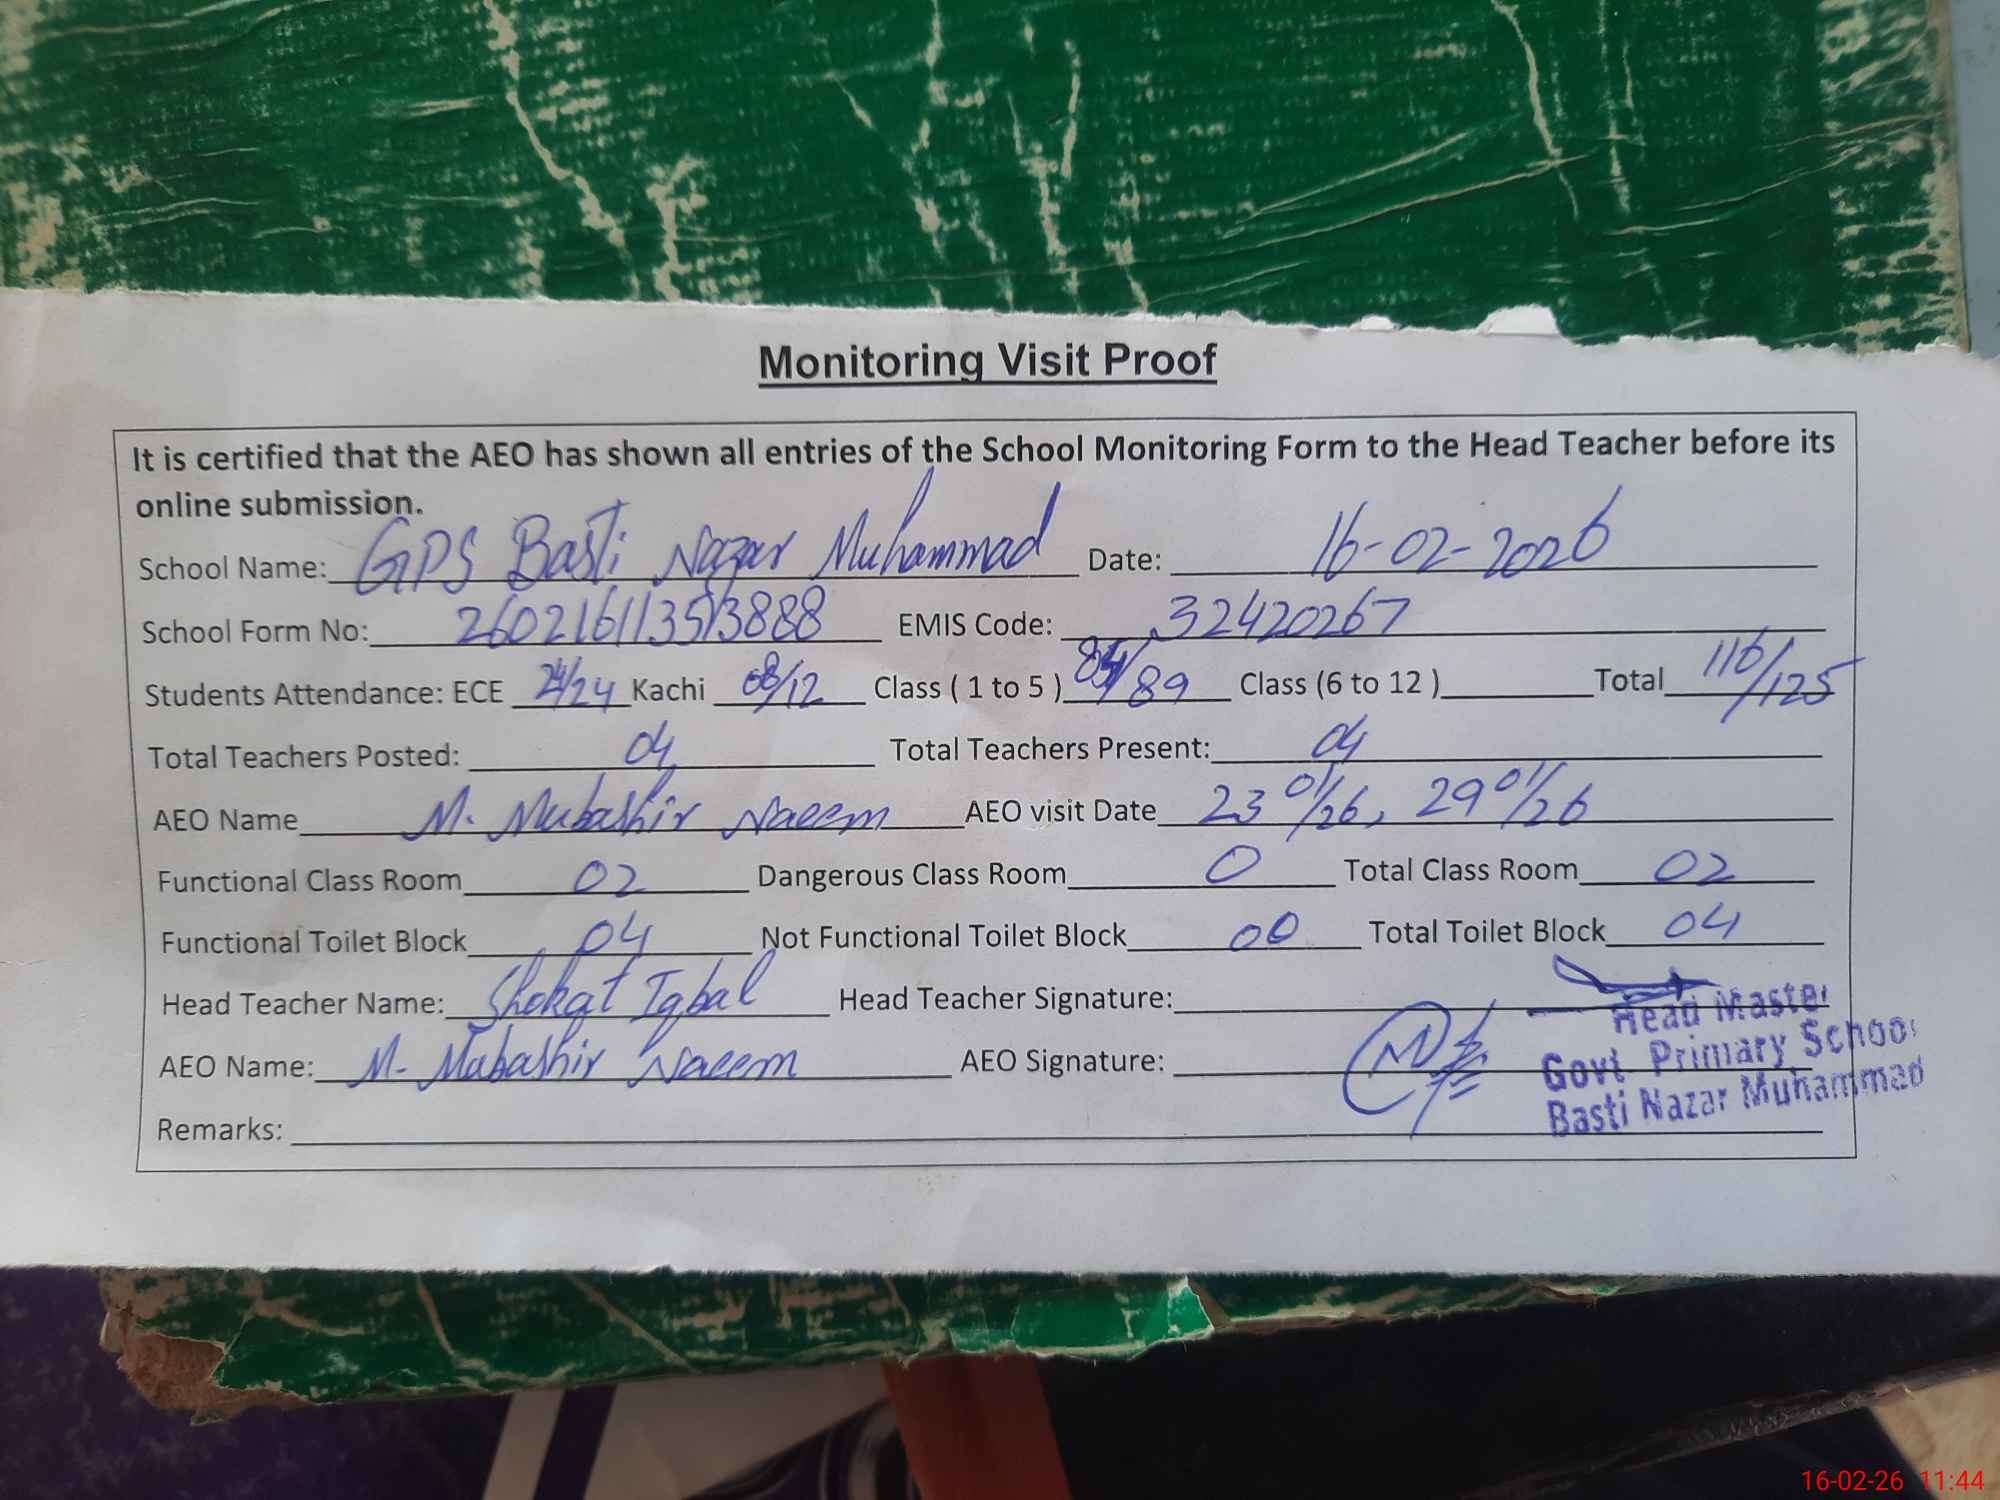 Monitoring Visit Proof
It is certified that the AEO has shown all entries of the School Monitoring Form to the Head Teacher before its
online submission.
School Name: GPS Basti Nazar Muhammad Date: 16-02-2026
School Form No: 260216113513888 EMIS Code: 32420267
Students Attendance: ECE 24/24 Kachi 08/12 Class ( 1 to 5 ) 84/89 Class (6 to 12 ) Total 116/125
Total Teachers Posted: 04 Total Teachers Present: 04
AEO Name M. Mubashir Naeem AEO visit Date 23 01/26, 29 01/26
Functional Class Room 02 Dangerous Class Room 0 Total Class Room 02
Functional Toilet Block 04 Not Functional Toilet Block 00 Total Toilet Block 04
Head Teacher Name: Shokat Iqbal Head Teacher Signature:
Head Master
Govt Primary School
Basti Nazar Muhammad
AEO Name: M. Mubashir Naeem AEO Signature:
Remarks:
16-02-26 11:44